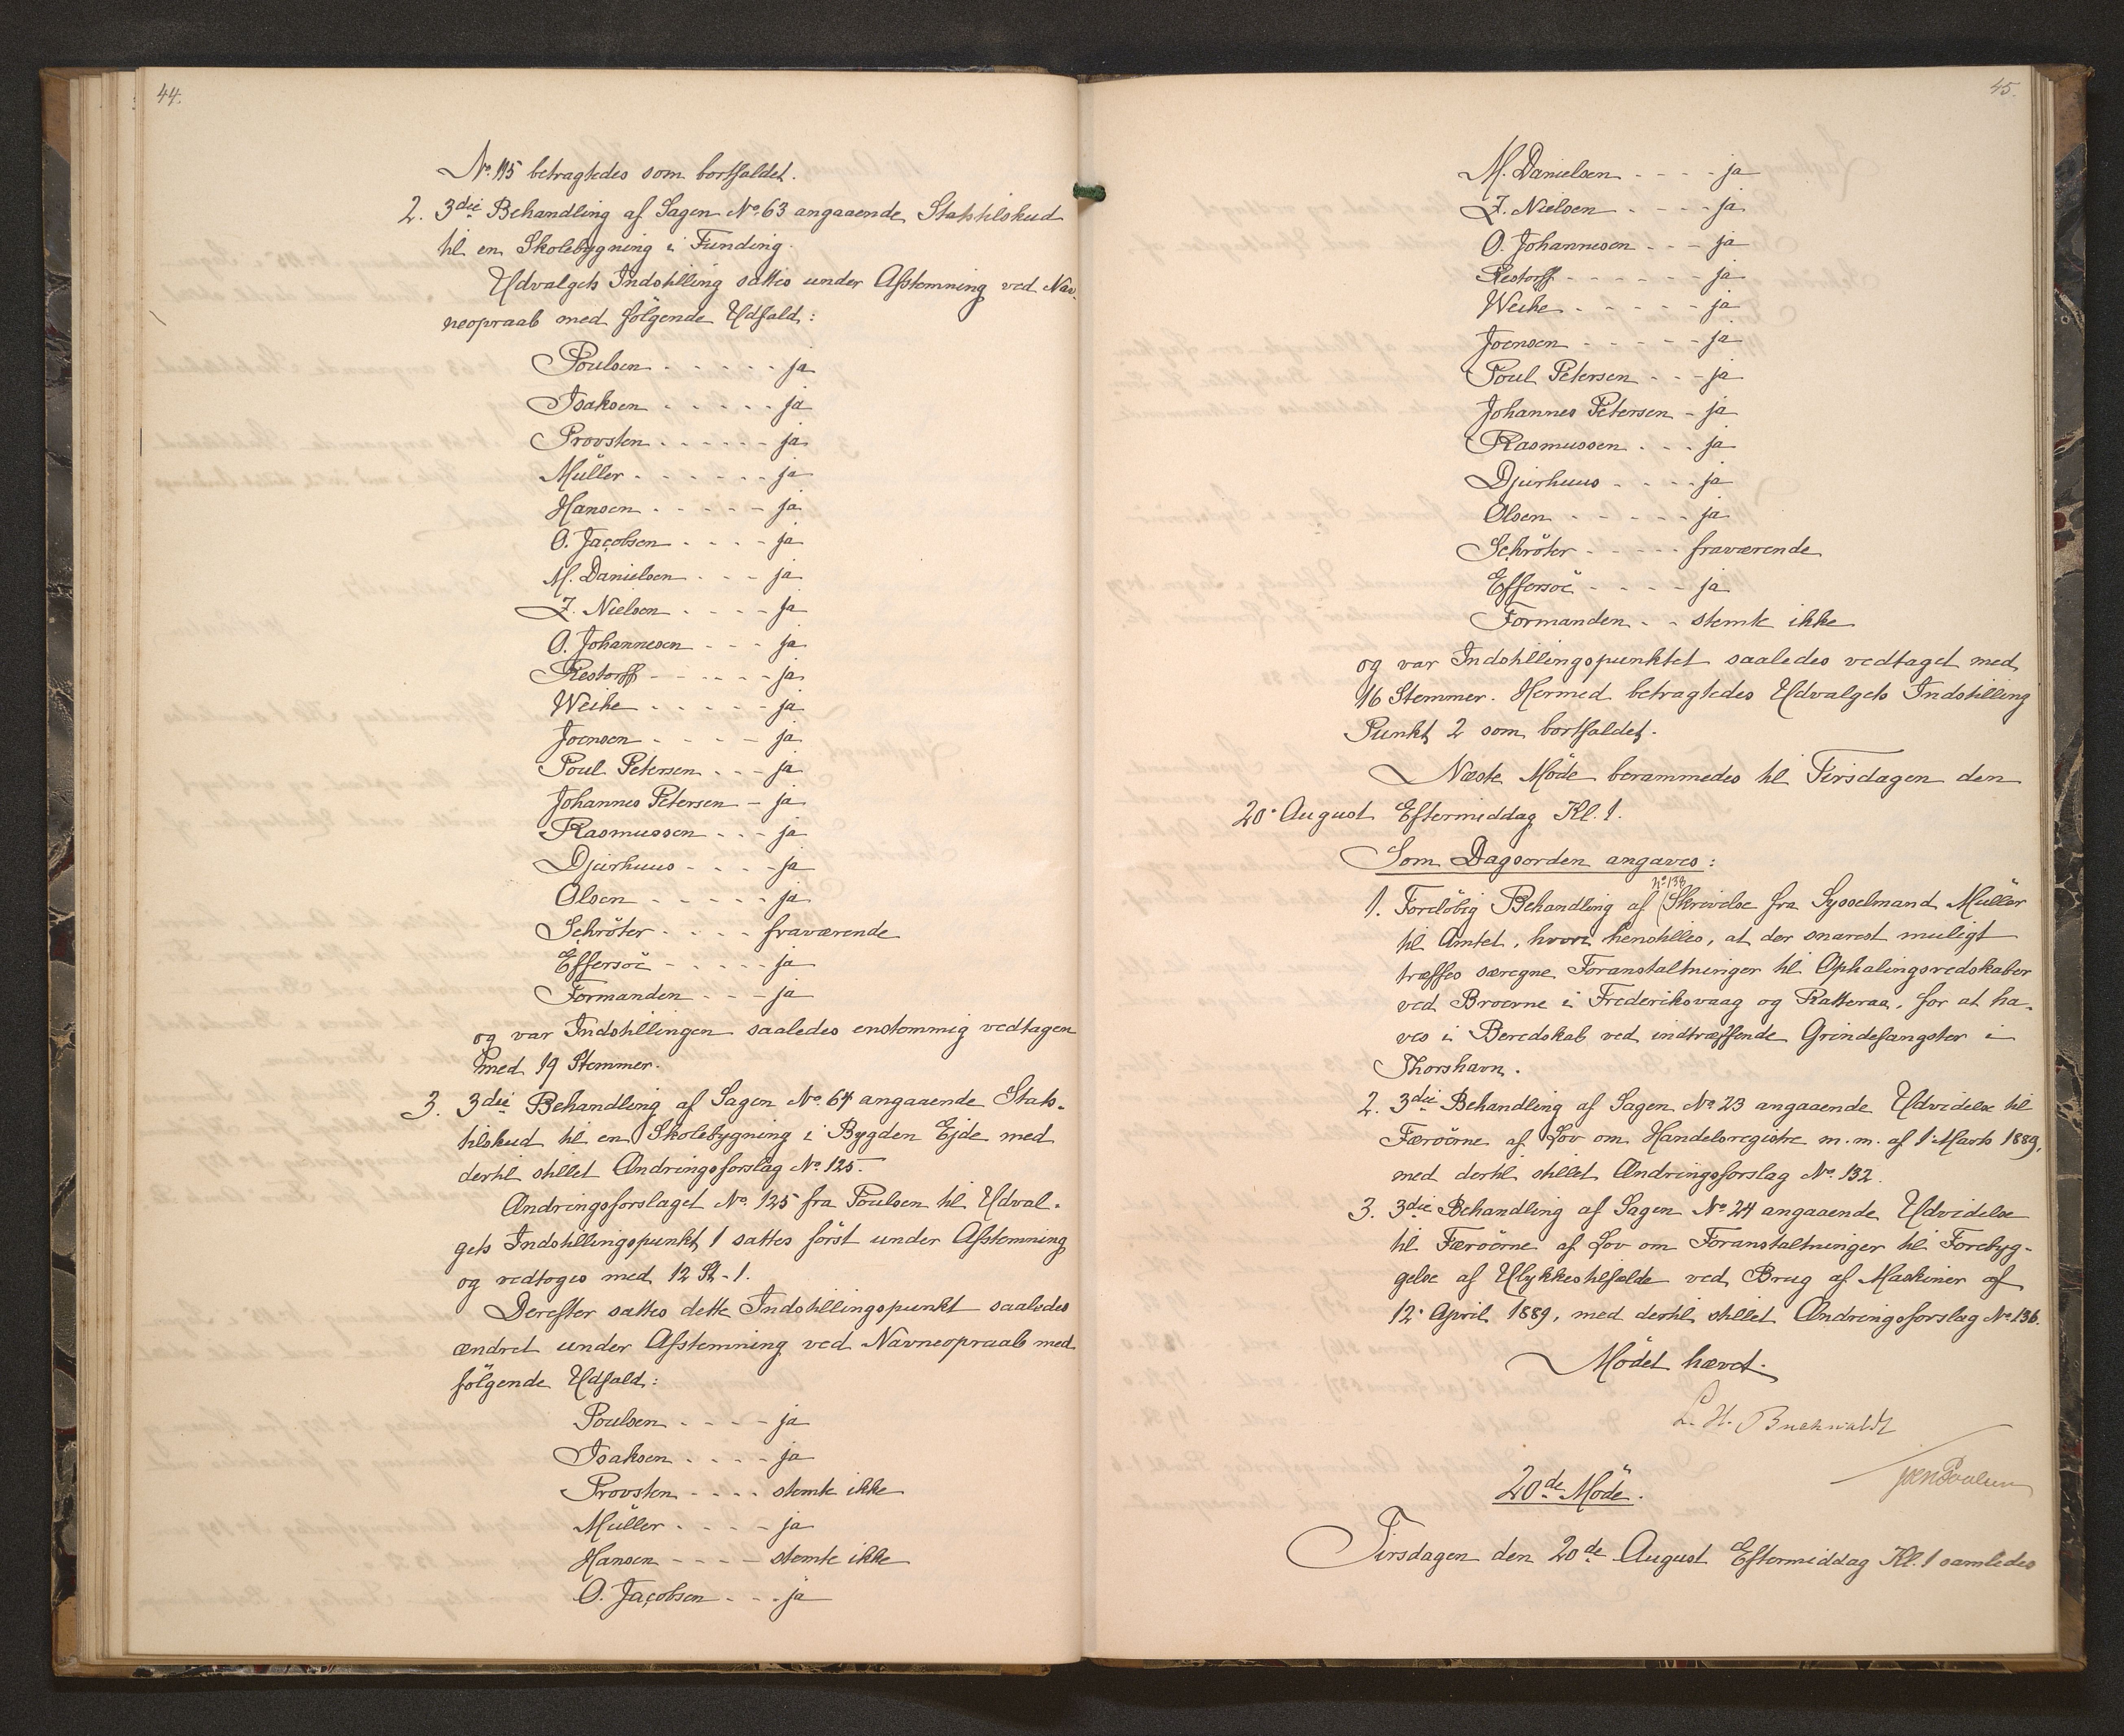 44.
No. 115 betragtedes som bortfaldet.
2. 3die Behandling af Sagen No. 63 angaaende Statstilskud
til en Skolebygning i Funding.
Udvalgets Indstilling sattes under Afstemning ved Nav-
neopraab med følgende Udfald:
Poulsen - - - - - ja
Isaksen - - - - - ja
Provsten - - - - - - ja
Müller - - - - - - ja
Hansen - - - - - ja
O. Jacobsen - - - - ja
M. Danielsen - - - ja
J. Nielsen - - - - ja
O. Johannesen - - - ja
Restorff - - - - - - ja
Weihe - - - - - ja
Joensen - - - - ja
Poul Petersen - - - ja
Johannes Petersen - ja
Rasmussen - - - ja
Djurhuus - - - - ja
Olsen - - - - - ja
Schröter - - - - fraværende
Effersöe - - - - - ja
Formanden - - - ja
og var Indstillingen saaledes enstemmig vedtagen
med 19 Stemmer.
3. 3die Behandling af Sagen No. 64 angaaende Stats-
tilskud til en Skolebygning i Bygden Ejde med
dertil stillet Ændringsforslag No. 125.
Ændringsforslaget No. 125 fra Poulsen til Udval-
gets Indstillingspunkt 1 sattes först under Afstemning
og vedtoges med 12 St. - 1.
Derefter sattes dette Indstillingspunkt saaledes
ændret under Afstemning ved Navneopraab med
følgende Udfald:
Poulsen - - - - ja
Isaksen - - - - ja
Provsten - - - - stemte ikke
Müller - - - - ja
Hansen - - - - stemte ikke
O. Jacobsen - - - ja
45.
M. Danielsen - - - - ja
J. Nielsen - - - - ja
O. Johannesen - - - ja
Restorff - - - - - - ja
Weihe - - - - - ja
Joensen - - - - - ja
Poul Petersen - - - ja
Johannes Petersen - ja
Rasmussen - - - ja
Djurhuus - - - - ja
Olsen - - - - - ja
Schröter - - - - - fraværende
Effersöe - - - - ja
Formanden - - stemte ikke
og var Indstillingspunktet saaledes vedtaget med
16 Stemmer. Hermed betragtedes Udvalgets Indstilling
Punkt 2 som bortfaldet.
Næste Möde berammedes til Tirsdagen den
20. August Eftermiddag Kl. 1.
Som Dagsorden angaves:
No. 138
1. Foreløbig Behandling af Skrivelse fra Sysselmand Müller
til Amtet, hvori henstilles, at der snarest muligt
træffes særegne Foranstaltninger til Ophalingsredskaber
ved Broerne i Frederiksvaag og Rætteraa, for at ha-
ves i Beredskab ved indtræffende Grindefangster i
Thorshavn.
2. 3die Behandling af Sagen No. 23 angaaende Udvidelse til
Færöerne af Lov om Handelsregistre m. m. af 1 Marts 1889,
med dertil stillet Ændringsforslag No. 132.
3. 3die Behandling af Sagen No. 24 angaaende Udvidelse
til Færöerne af Lov om Foranstaltninger til Forebyg-
gelse af Ulykkestilfælde ved Brug af Maskiner af
12. April 1889, med dertil stillet Ændringsforslag No. 136.
Mödet hævet.
L. H. Buchwaldt
20de Möde.
Tirsdagen den 20de August Eftermiddag Kl. 1 samledes